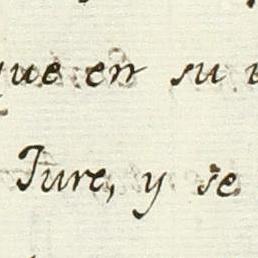 que en su
Jure, y se